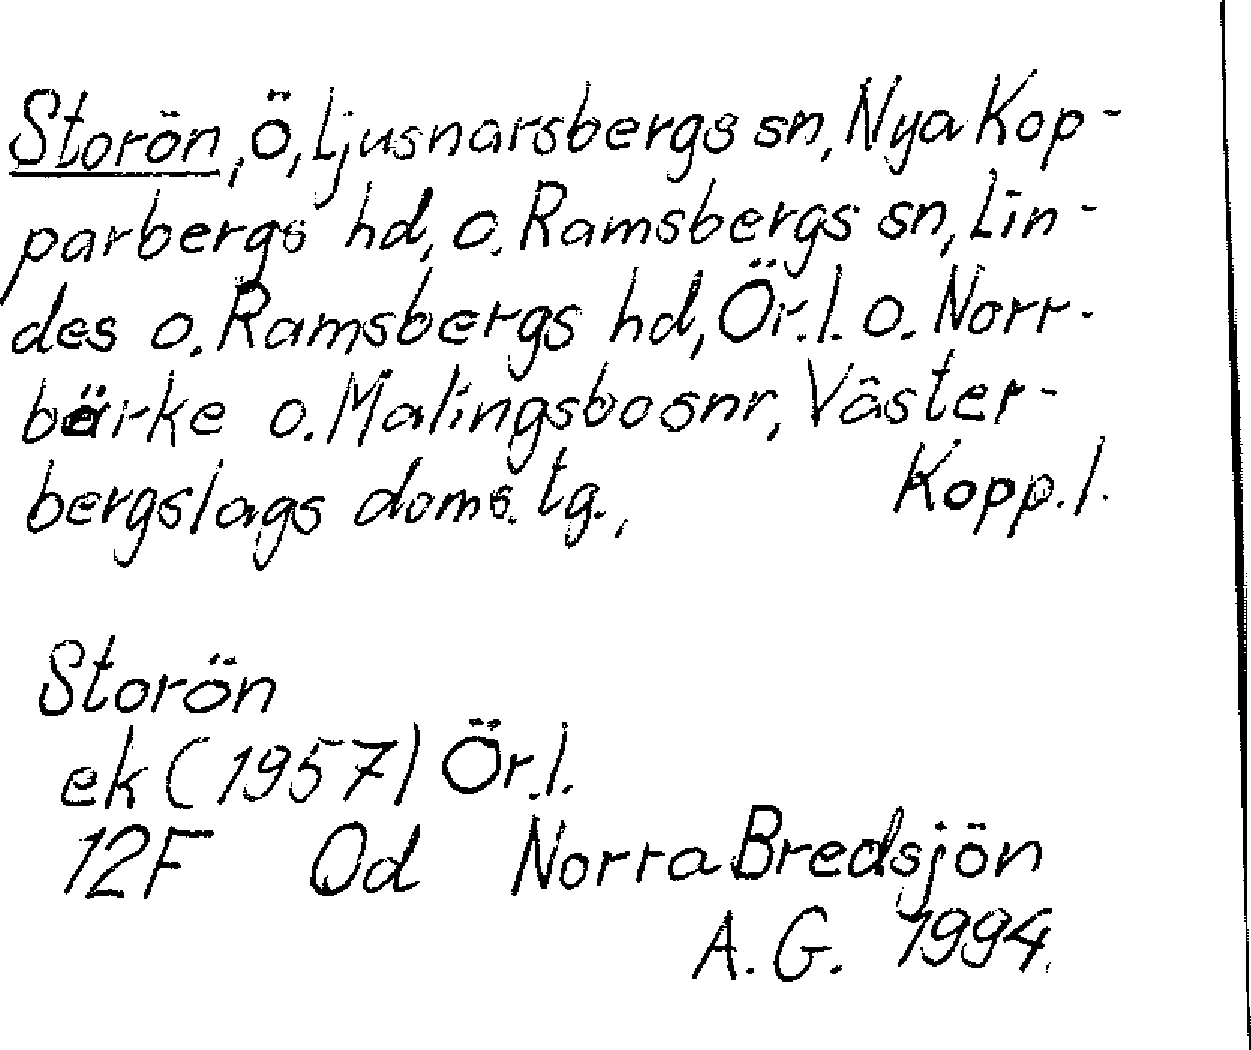 Storön, ö, Ljusnarsbergs sn, Nya Kop-
parbergs hd, o. Ramsbergs sn, Lin-
des o. Ramsbergs hd, Ör.l. o. Norr-
bärke o. Malingsbo snr, Väster-
bergslags doms. tg., Kopp.l.
Storön
ek (1957) Ör.l.
12F 0d Norra Bredsjön
A.G. 1994.